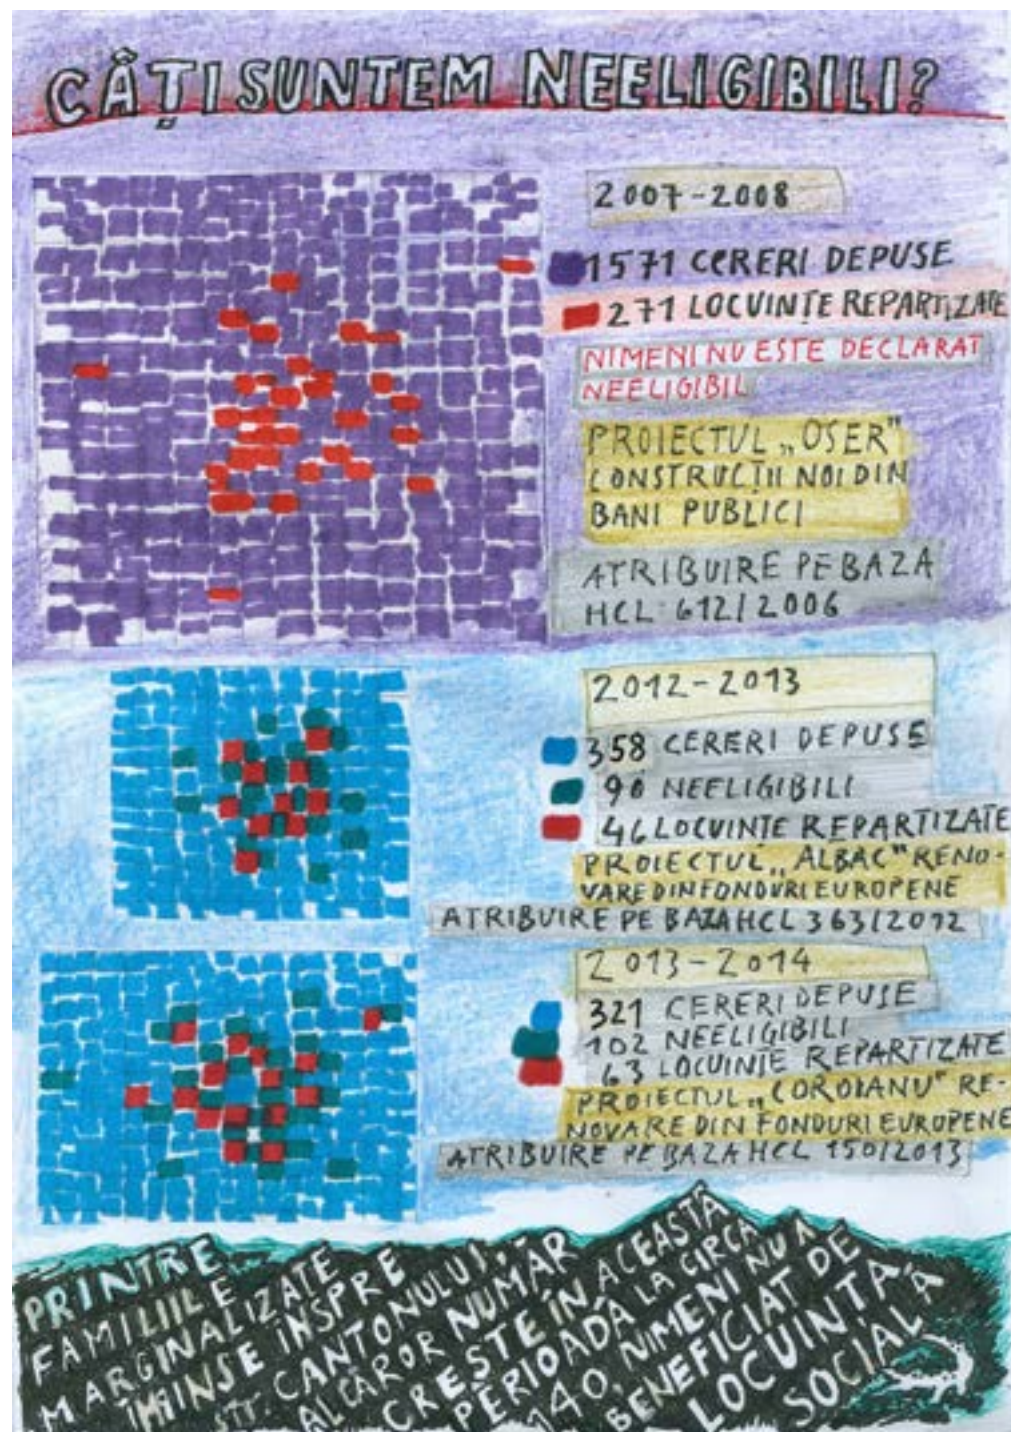 CÂȚI SUNTEM NEELIGIBILI?
2007-2008
1571 CERERI DEPUSE
271 LOCUINȚE REPARTIZATE
NIMENI NU ESTE DECLARAT
NEELIGIBIL
PROIECTUL „OSER"
CONSTRUCȚII NOI DIN
BANI PUBLICI
ATRIBUIRE PE BAZA
HCL 612/2006
2012-2013
358 CERERI DEPUSE
90 NEELIGIBILI
46 LOCUINȚE REPARTIZATE
PROIECTUL „ALBAC" RENO-
VARE DIN FONDURI EUROPENE
ATRIBUIRE PE BAZA HCL 363/2012
2013-2014
321 CERERI DEPUSE
102 NEELIGIBILI
63 LOCUINȚE REPARTIZATE
PROIECTUL „COROIANU" RE-
NOVARE DIN FONDURI EUROPENE
ATRIBUIRE PE BAZA HCL 150/2013
PRINTRE
FAMILIILE
MARGINALIZATE
ÎMPINSE INSPRE
str. CANTONULUI,
AL CĂROR NUMĂR
CREȘTE ÎN ACEASTĂ
PERIOADĂ LA CIRCA
140, NIMENI NU A
BENEFICIAT DE
LOCUINȚĂ
SOCIALĂ